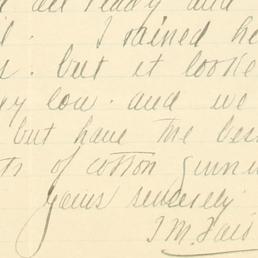 all ready and
I rained he
s. but it looke
ey low. and we
but have the bes
ts of cotton ginn
yours sincerely